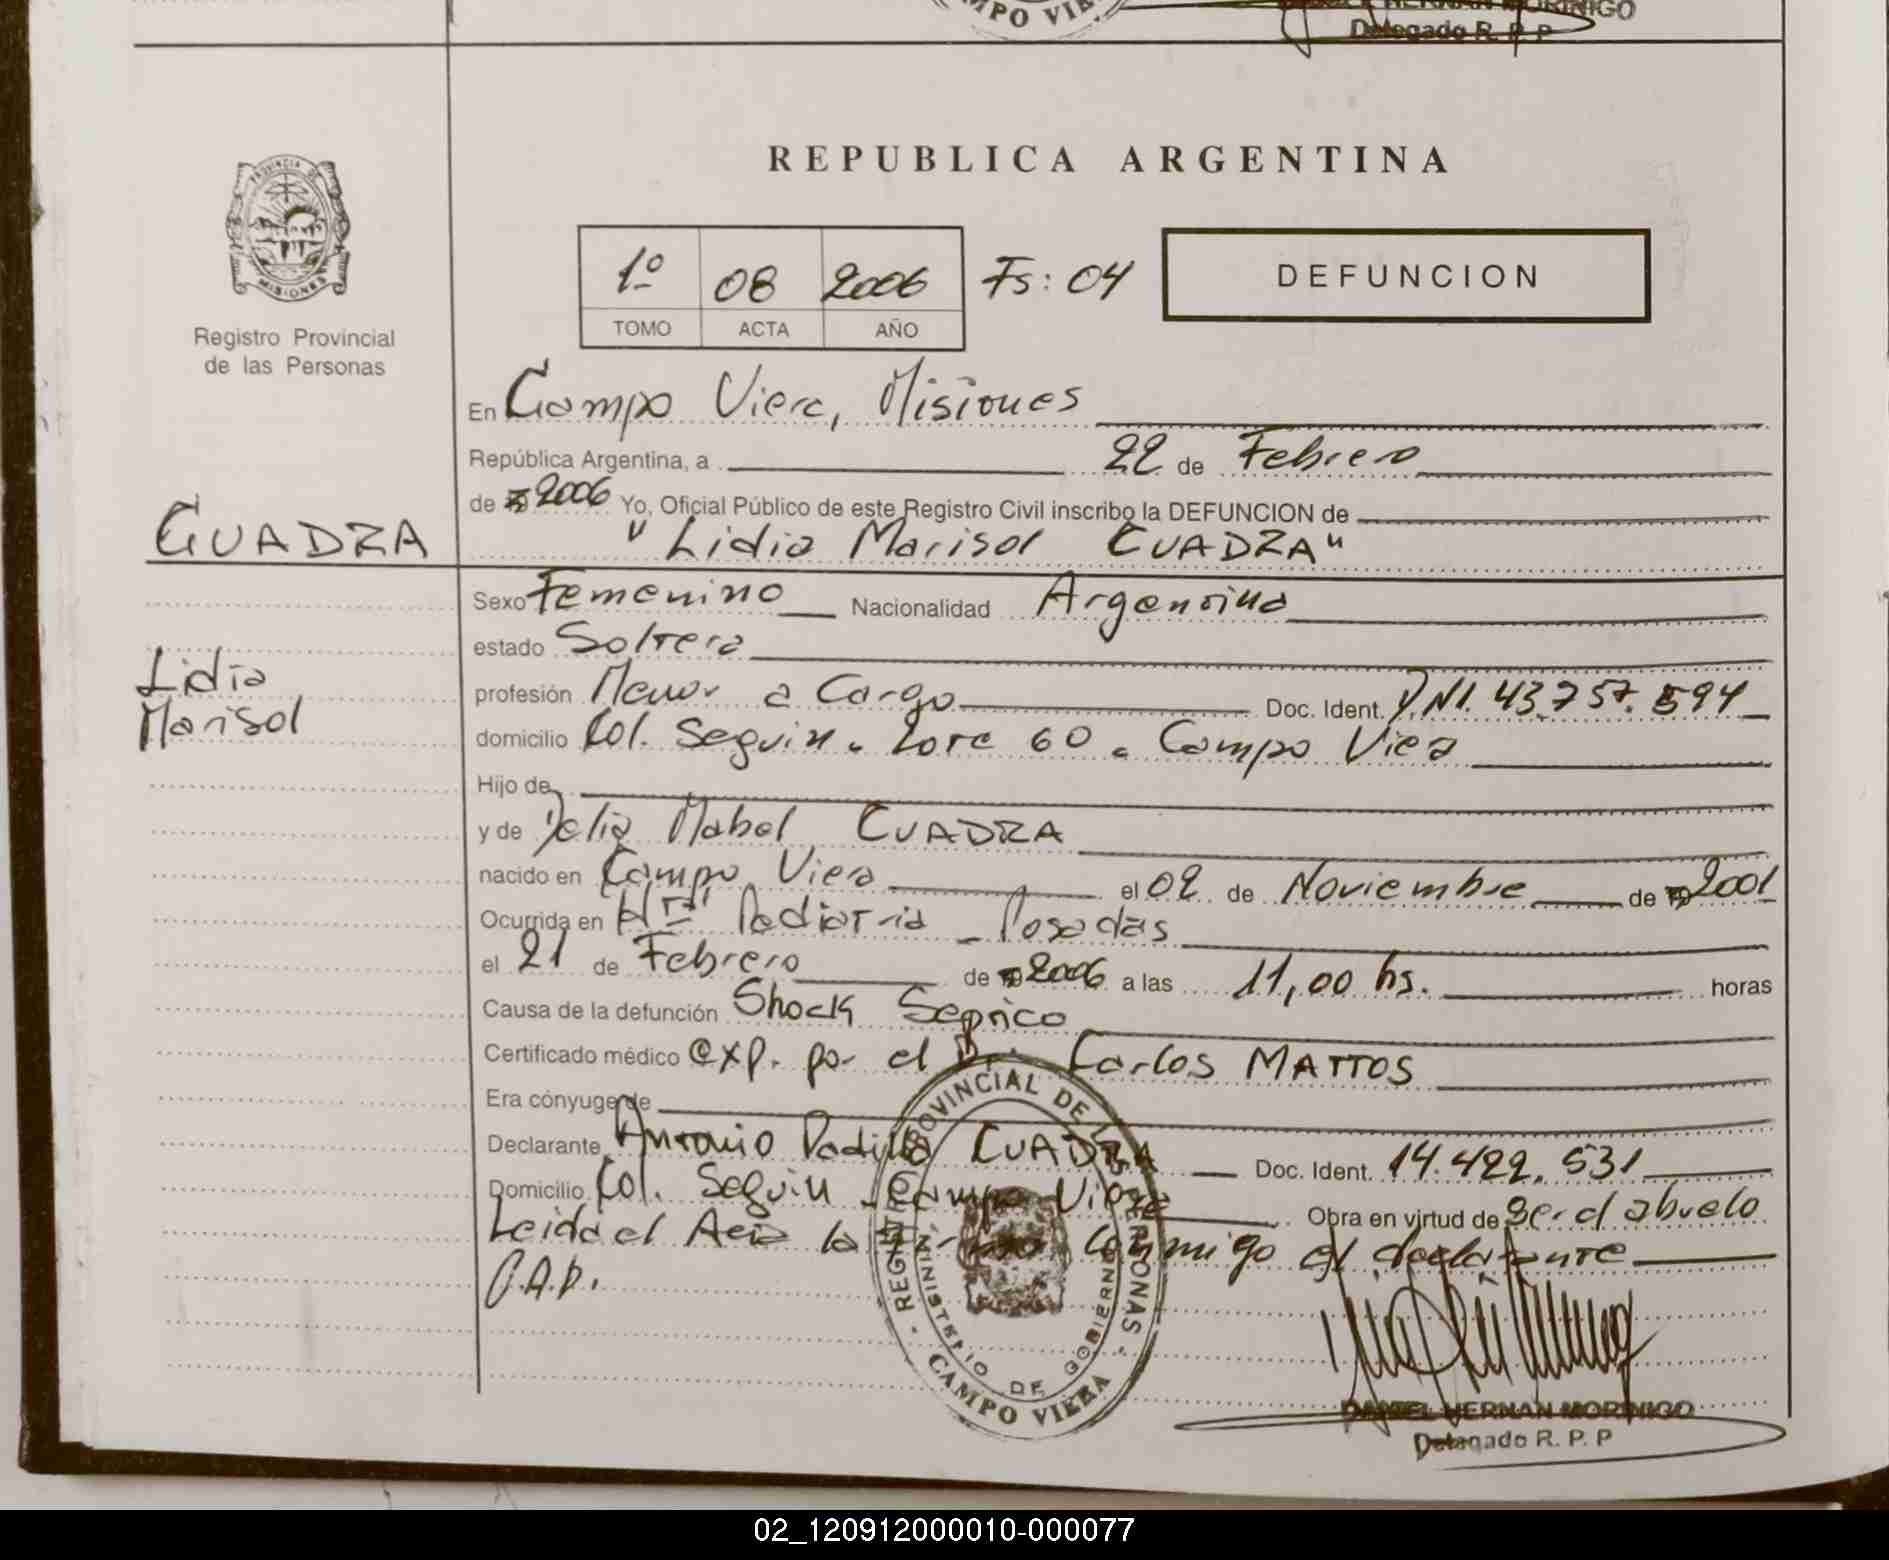 MPO VIE
HERNAN MORINIGO
Delegado R. P. P
REPUBLICA ARGENTINA
PROVINCIA DE
MISIONES
Registro Provincial
de las Personas
1º 08 2006 Fs: 04
TOMO ACTA AÑO
DEFUNCION
En Campo Viera, Misiones
República Argentina, a 22 de Febrero
de 2006 Yo, Oficial Público de este Registro Civil inscribo la DEFUNCION de
CUADRA "Lidia Marisol CUADRA"
Sexo Femenino Nacionalidad Argentina
estado Soltera
Lidia
Marisol
profesión Menor a Cargo Doc. Ident. DNI. 43.757.594
domicilio Col. Seguin. Lote 60. Campo Viera
Hijo de
y de Delia Mabel CUADRA
nacido en Campo Viera el 02 de Noviembre de 2001
Ocurrida en Pediatria - Posadas
el 21 de Febrero de 2006 a las 11,00 hs. horas
Causa de la defunción Shock Septico
Certificado médico exp. por el Dr. Carlos MATTOS
Era cónyuge de
Declarante Antonio Padilla CUADRA Doc. Ident. 14.422.531
Domicilio Col. Seguin - Campo Viera Obra en virtud de ser el abuelo
Leida el Acta la firma conmigo el declarante
REGISTRO PROVINCIAL DE LAS PERSONAS
MINISTERIO DE GOBIERNO
CAMPO VIERA
DANIEL HERNAN MORINIGO
Delegado R. P. P
02_120912000010-000077